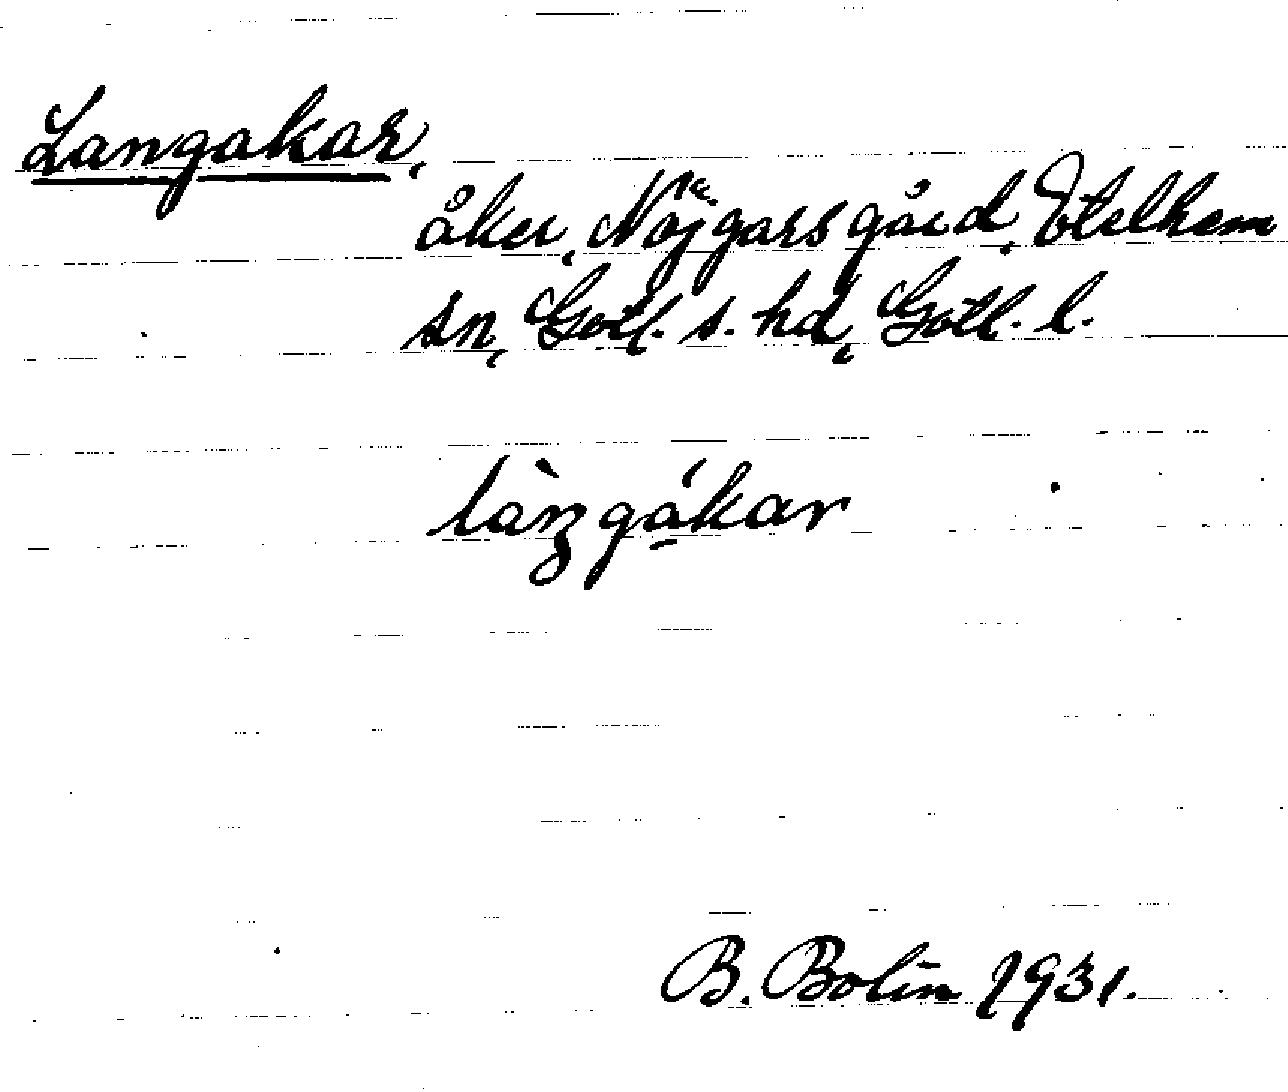 Langakar,
åker, Nöjgarsgård, Etelhem
sn, Gotl. s. hd, Gotl. l.
làŋgákar
B. Bolin 1931.